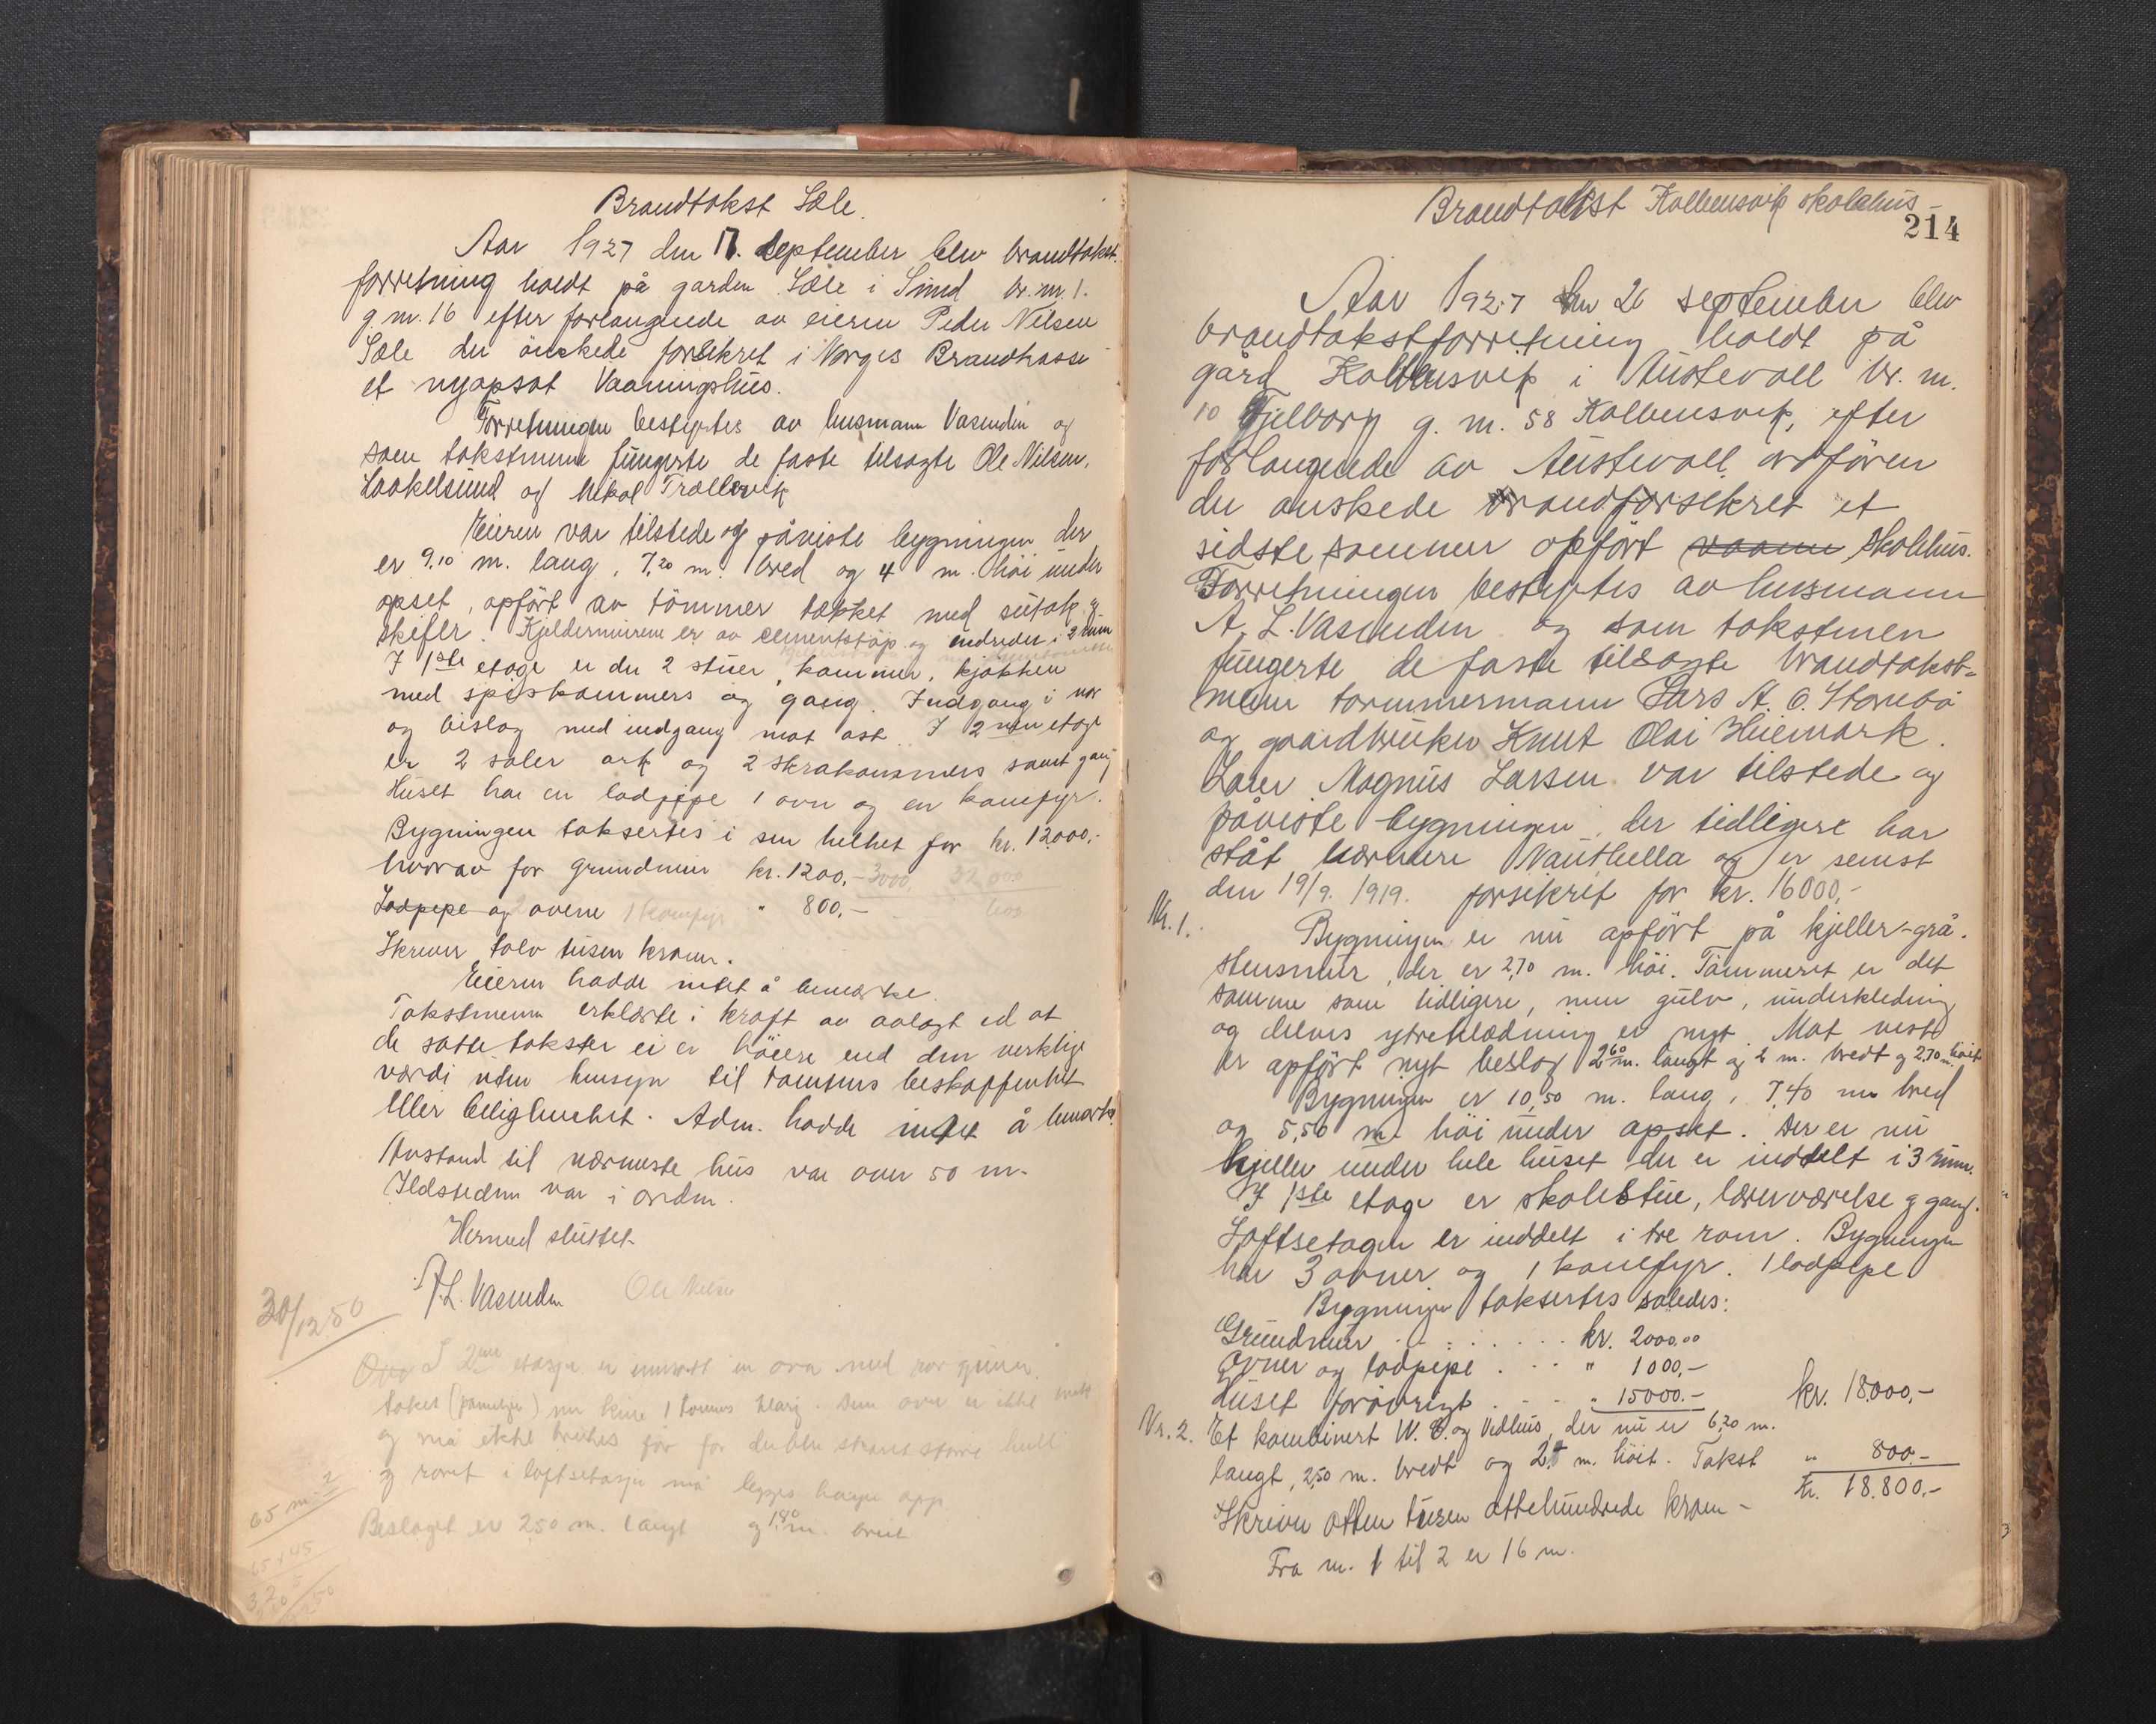 Brandtakst Sæle.
Aar 1927 den 17. september blev brandtakst.
forretning holdt på garden Sæle i Sund br. nr. 1.
g. nr. 16 efter forlangende av eieren Peder Nilsen
Sæle der önskede forsikret i Norges Brandkasse
et nyopsat Vaaningshus.
Forretningen bestyrtes av lensmann Vasenden og
som takstmenn fungerte de faste tilsagte Ole Nilsen,
og Mikal Trællevik
Eieren var tilstede og påviste bygningen der
er 9,10 m. lang, 7,20 m. bred og 4 m. höi under
opset, opfört av tömmer tækket med sutak g
skifer. Kjeldermurene er av cementstöp og indredet i 2 rum
I 1ste etage er der 2 stuer, kammer, kjökken
med spiskammers og gang. Indgang i nor
og bislag med indgang mot øst. I 2nen etage
er 2 saler ark og 2 skråkammers samt gang
Huset har en lodpipe 1 ovn og en komfyr.
Bygningen taksertes i sin helhet for kr. 12000.-
hvorav for grundmur kr. 1200.- 3000, 32000
Lodpipe og 2 ovene 1 komfyr " 800,-
Skriver tolv tusen kroner.
Eieren hadde intet å bemærke.
Takstmenn erklærte i kraft av avlagt ed at
de satte takster ei er höiere end den verklige
værdi uten hensyn til tomtens beskaffenhet
eller beliggenhet. Adm. hadde intet å bemærke.
Avstand til nærmeste hus var over 50 m.
Ildstedene var i orden.
Hermed sluttet
A. L. Vasenden Ole Nilsen
30/12 50
I 2nen etasje er innsatt en ovn med rör gjennem
taket
og må ikke brukes för
g röret i loftsetasje må legges höiere opp
65 m 2
Beslaget er 250 m. langt og 180 m. bredt
65 x 45
320
Brandtakst Kolbensvik skolehus
214
Aar 1927 den 26 september blev
brandtakstforretning holdt på
gård Kolbensvik i Austevoll br. nr.
10 Fjelborg g. nr. 58 Kolbensvik, efter
forlangende av Austevoll ordförer
der önskede brandforsikret et
sidste sommer opfört vaane skolehus.
Forretningen bestyrtes av lensmann
A. L. Vasenden og som takstmen
fungerte de faste tilsagte brandtakst-
menn tømmermann Lars A. O. Storebö
og gaardbruker Knut Olai Huemark.
Lærer Magnus Larsen var tilstede og
påviste bygningen, der tidligere har
ståt nærmere Nauthella og er senest
den 19/9. 1919. forsikret for kr. 16000,-
Nr. 1.
Bygningen er nu opfört på kjeller-grå.
stensmur, der er 2,70 m. höi. Tömmeret er det
samme som tidligere, men gulv, underkledning
og delvis ytreklædning er nyt. Mot vest
er opfört nyt beslag 2,60 m. langt og 2 m. bredt og 2,70 m. höit
Bygningen er 10,50 m. lang, 7,40 m bred
og 5,50 m. höi under opset. Der er nu
kjeller under hele huset der er inddelt i 3 rum.
I 1ste etage er skolestue, lærerværelse g gang.
Loftsetagen er inddelt i tre rom. Bygningen
har 3 ovner og 1 komfyr. 1 lodpipe
Bygningen taksertes således:
Grundmur . . . . . . . kr. 2000.00
Ovner og lodpipe . . . " 1000,-
Huset forövrigt . . . . " 15000.- kr. 18000,-
Nr. 2. Et kombinert W. C. og Vedhus, der nu er 6,20 m.
langt, 2,50 m. bredt og m. höit. Takst " 800.-
kr. 18.800.-
Skriver atten tusen ottehundrede kroner -
Fra nr. 1 til 2 er 16 m.